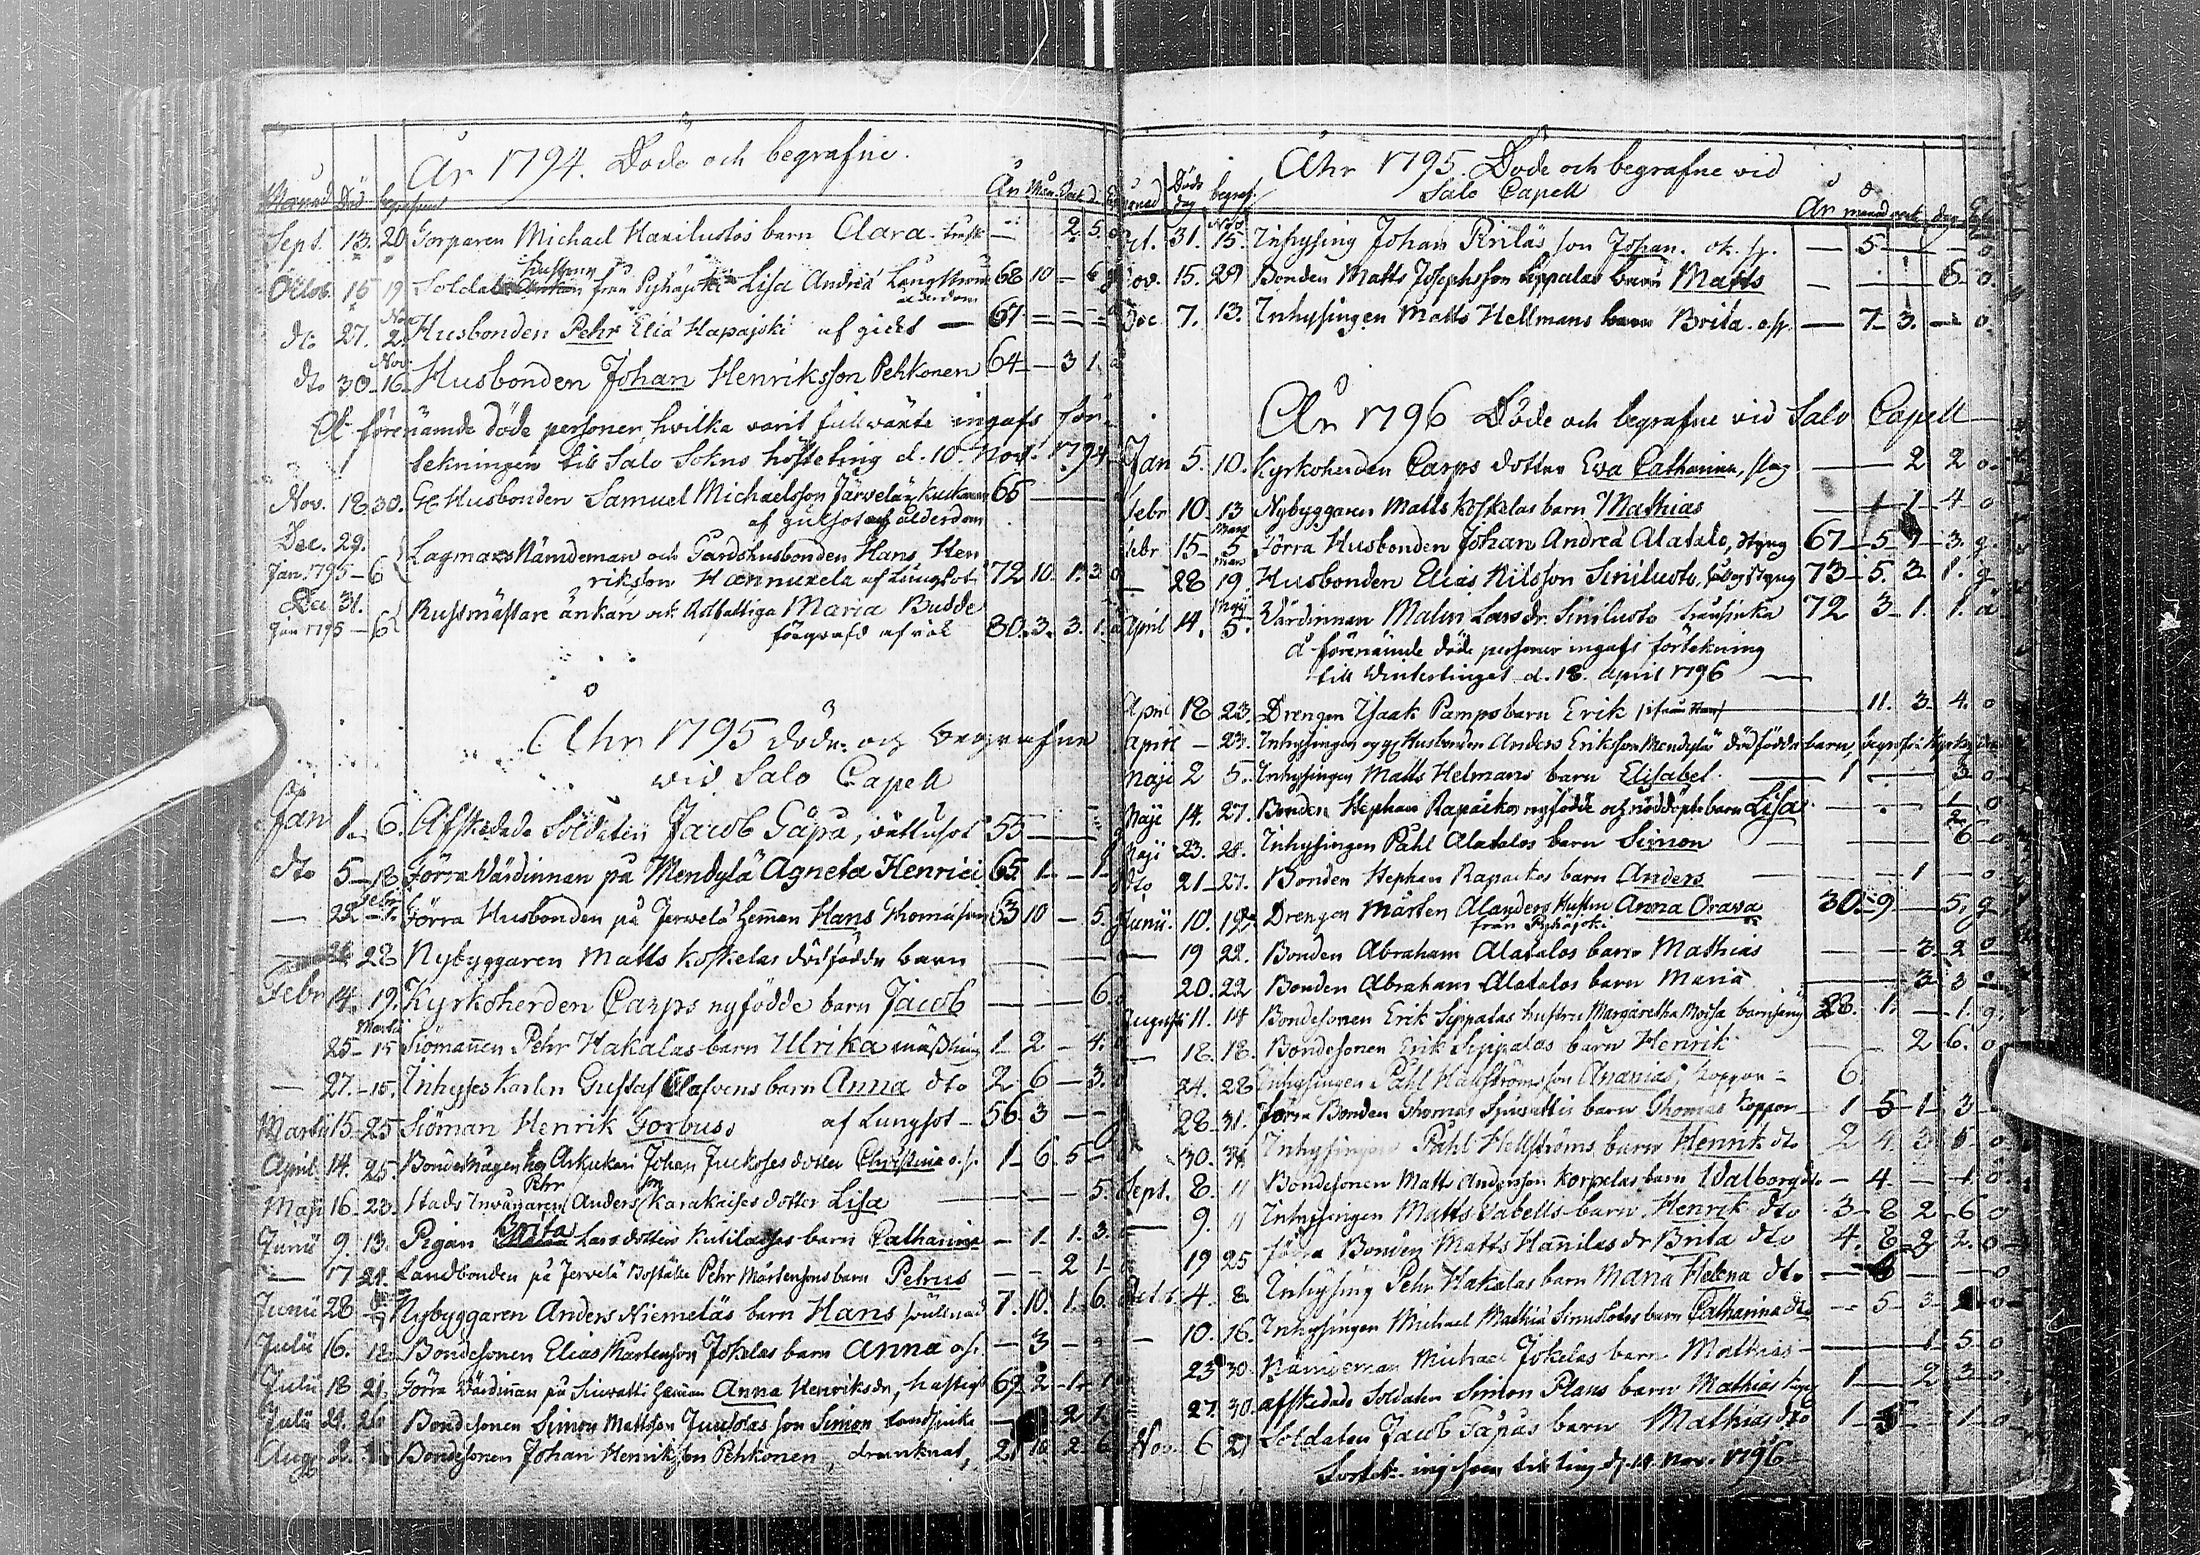 År 1794. Döde och begrafne.
Månad Död begrafven År Mån. d.
Sept. 13. 20. Michael barn Clara - 2. 5.
Octob. 15 19 Soldat hustrun från Pyhäjoki Lisa Andreä 68 10 - 6
ålderdom
Nov.
dto 27. 2. Husbonden Pehr Eliä Hapajoki af gickt — 67 - - -
Nov.
dto 30. 16. Husbonden Johan Henriksson Pehkonen 64 - 3 1.
förenämde döde personer, hvilka varit fullväxte ingafs för-
tekningen till Salo Sokns hösteting d. 10. Nov. 1794.
Nov. 18 30. Gl. Husbonden Samuel Michaelsson Järvelä 66
af ålderdom
Dec. 29. Nämdeman och Gårdshusbonden Hans Hen
Jan. 1795 - 6 riksson Hannuxela af Lungsot 72 10. 1. 3.
Dec. 31. änkan och Utfattiga Maria Budde
Jan 1795 - 6 80. 3. 3. 1.
Ahr 1795 döde och begrafne
vid Salo Capell
Jan 1. 6. Afskedade Soldaten Jacob Gåpa, vattusot 55 - -
dto 5 - 18 Förra Värdinnan på Mendylä Agneta Henrici 65 1 - 1
Febr.
— 22 - 1. Förra Husbonden på Jervelä Heman Hans Thomasson 63 10 - 5.
28 Nybyggaren Matts Koskelas dödfödde barn
Febr 14. 19. Kyrkoherden Carps nyfödde barn Jacob — — 6.
Martii
25 - 15 Siömannen Pehr Hakalas barn Ulrika mässling 1 - 2 - 4.
— 27. - 15. Inhyses Karlen Gustaf Olafvens barn Anna dto 2 - 6 - 3.
Martii 15. 25 Siöman Henrik Gorbuss af Lungsot - 56 3 - -
April. 14. 25. Bonde Johan dotter Christina o. s. 1 - 6 - 5 -
Pehr son
Maji 16 - 23. Stads Invånaren Anders Karakaises dotter Lisa - - - 5.
Junii 9. 13. Pigan Brita Lars dotter barn Catharina - 1 - 1. 3.
— 17 21. Landbonden på Jervelä Boställe Pehr Mårtensons barn Petrus - - 2 1 -
Junii 28 - Nybyggaren Anders Niemeläs barn Hans 7. 10. 1. 6.
Julii 16. 18 Bondesonen Elias Mårtenson Jokelas barn Anna o. s. - 3 - -
Julii 18 21. Förra Värdinnan på Siuvatti Heman Anna Henriksdr, hastigt 67 2 - 1 - 1
Julii 21. 26 Bondesonen Simon Mattsson son Simon - 2 1.
Aug. 2. Bondesonen Johan Henriksson Pehkonen, drunknat, 21 10 2 6
Ahr 1795. Döde och begrafne vid
Salo Capell
Månad Döds dag begraf. År månad veck. dag
Nov.
Oct. 31. 15. Inhysing Johan son Johan. ok. sj. — 5 — — o
Nov. 15. 29 Bonden Matts Josephsson Seppälas barn Matts — — 6. o.
Dec 7. 13. Inhysingen Matts Hellmans barn Brita. o.sj. — 7 - 3. — o.
År 1796 Döde och begrafne vid Salo Capell
Jan 5. 10. Kyrkoherden Carps dotter Eva Catharina, slag — 2 2 o.
Febr 10. 13 Nybyggaren Matts Koskelas barn Mathias — 1 - 1 - 4 - o
Mars
Febr 15 - 5 Förra Husbonden Johan Andreä Alatalo, styng 67 - 5 - 1 - 3. g.
— 28 19. Husbonden Elias Nilsson Siniluoto, styng 73 - 5. 3. 1. g
Maji
April 14. 5. Värdinnan Malin Larsdr. Siniluoto 72 3 - 1. 1. ä
å förenämde döde personer ingafs förtekning
till Vintertinget d. 18. April 1796 —
April 18 23. Drengen Isaak Pamps barn Erik 11. 3. 4. o
April — 23. Inhysingen Anders Eriksson Mendylä dödfödde barn,
Maji 2 5. Inhysingen Matts Helmans barn Elisabet — 1 — 3 o
Maji 14. 27. Bonden Stephan Rapackos nyfödde och nöddöpte barn Lisa — — — 1 - o
Maji 23. 28. Inhysingen Påhl Alatalos barn Simon — — 6 - o
dto 21 - 27. Bonden Stephan Rapackos barn Anders — 1 - o
Junii. 10. 12 Drengen Mårten Alanders Hustru Anna Orava 30. - 9 — 5. g
från Pyhäjoki
— 19 22. Bonden Abraham Alatalos barn Mathias — — 3. 2 o
20. 22 Bonden Abraham Alatalos barn Maria — — 3 3 o
Augusti 11. 14 Bondesonen Erik Seppälas hustru Margaretha barnsäng 28. 1. — 1. g.
— 18. 18. Bondesonen Erik Seppälas barn Henrik — 2 6. o
24. 28 Inhysingen Påhl Hällströms son Ananias, koppor - 6.
28 - 31. förra Bonden Thomas barn Thomas koppor - 1 - 5 - 1 - 3
30. Inhysingen Påhl Hellströms barn Henrik dto 2 4. 3. - o.
Sept. 8. 11 Bondesonen Matts Andersson Korpelas barn Valborg dto - 4 - - 1. o
— 9. 11 Inhysingen Matts barn Henrik dto - 3 - 8 2 - 6 o
19 25 förra Bonden Matts Hannilas dr Brita dto 4. 8 2 2. o
Oct. 4. 8. Inhysing Pehr Hakalas barn Maria Helena dto - - - o
— 10. 16. Inhysingen Michael Mathiä barn Catharina dto - 5 - 3
23 30. Nämdeman Michael Jokelas barn Mathias - — 1 - 5 o
27. 30. afskedade Soldaten Simon Plans barn Mathias 1 — 2 3 o
Nov. 6 Soldaten Jacob barn Mathias dto 1 - 5 - 1 - o
till ting d. 11 Nov. 1796